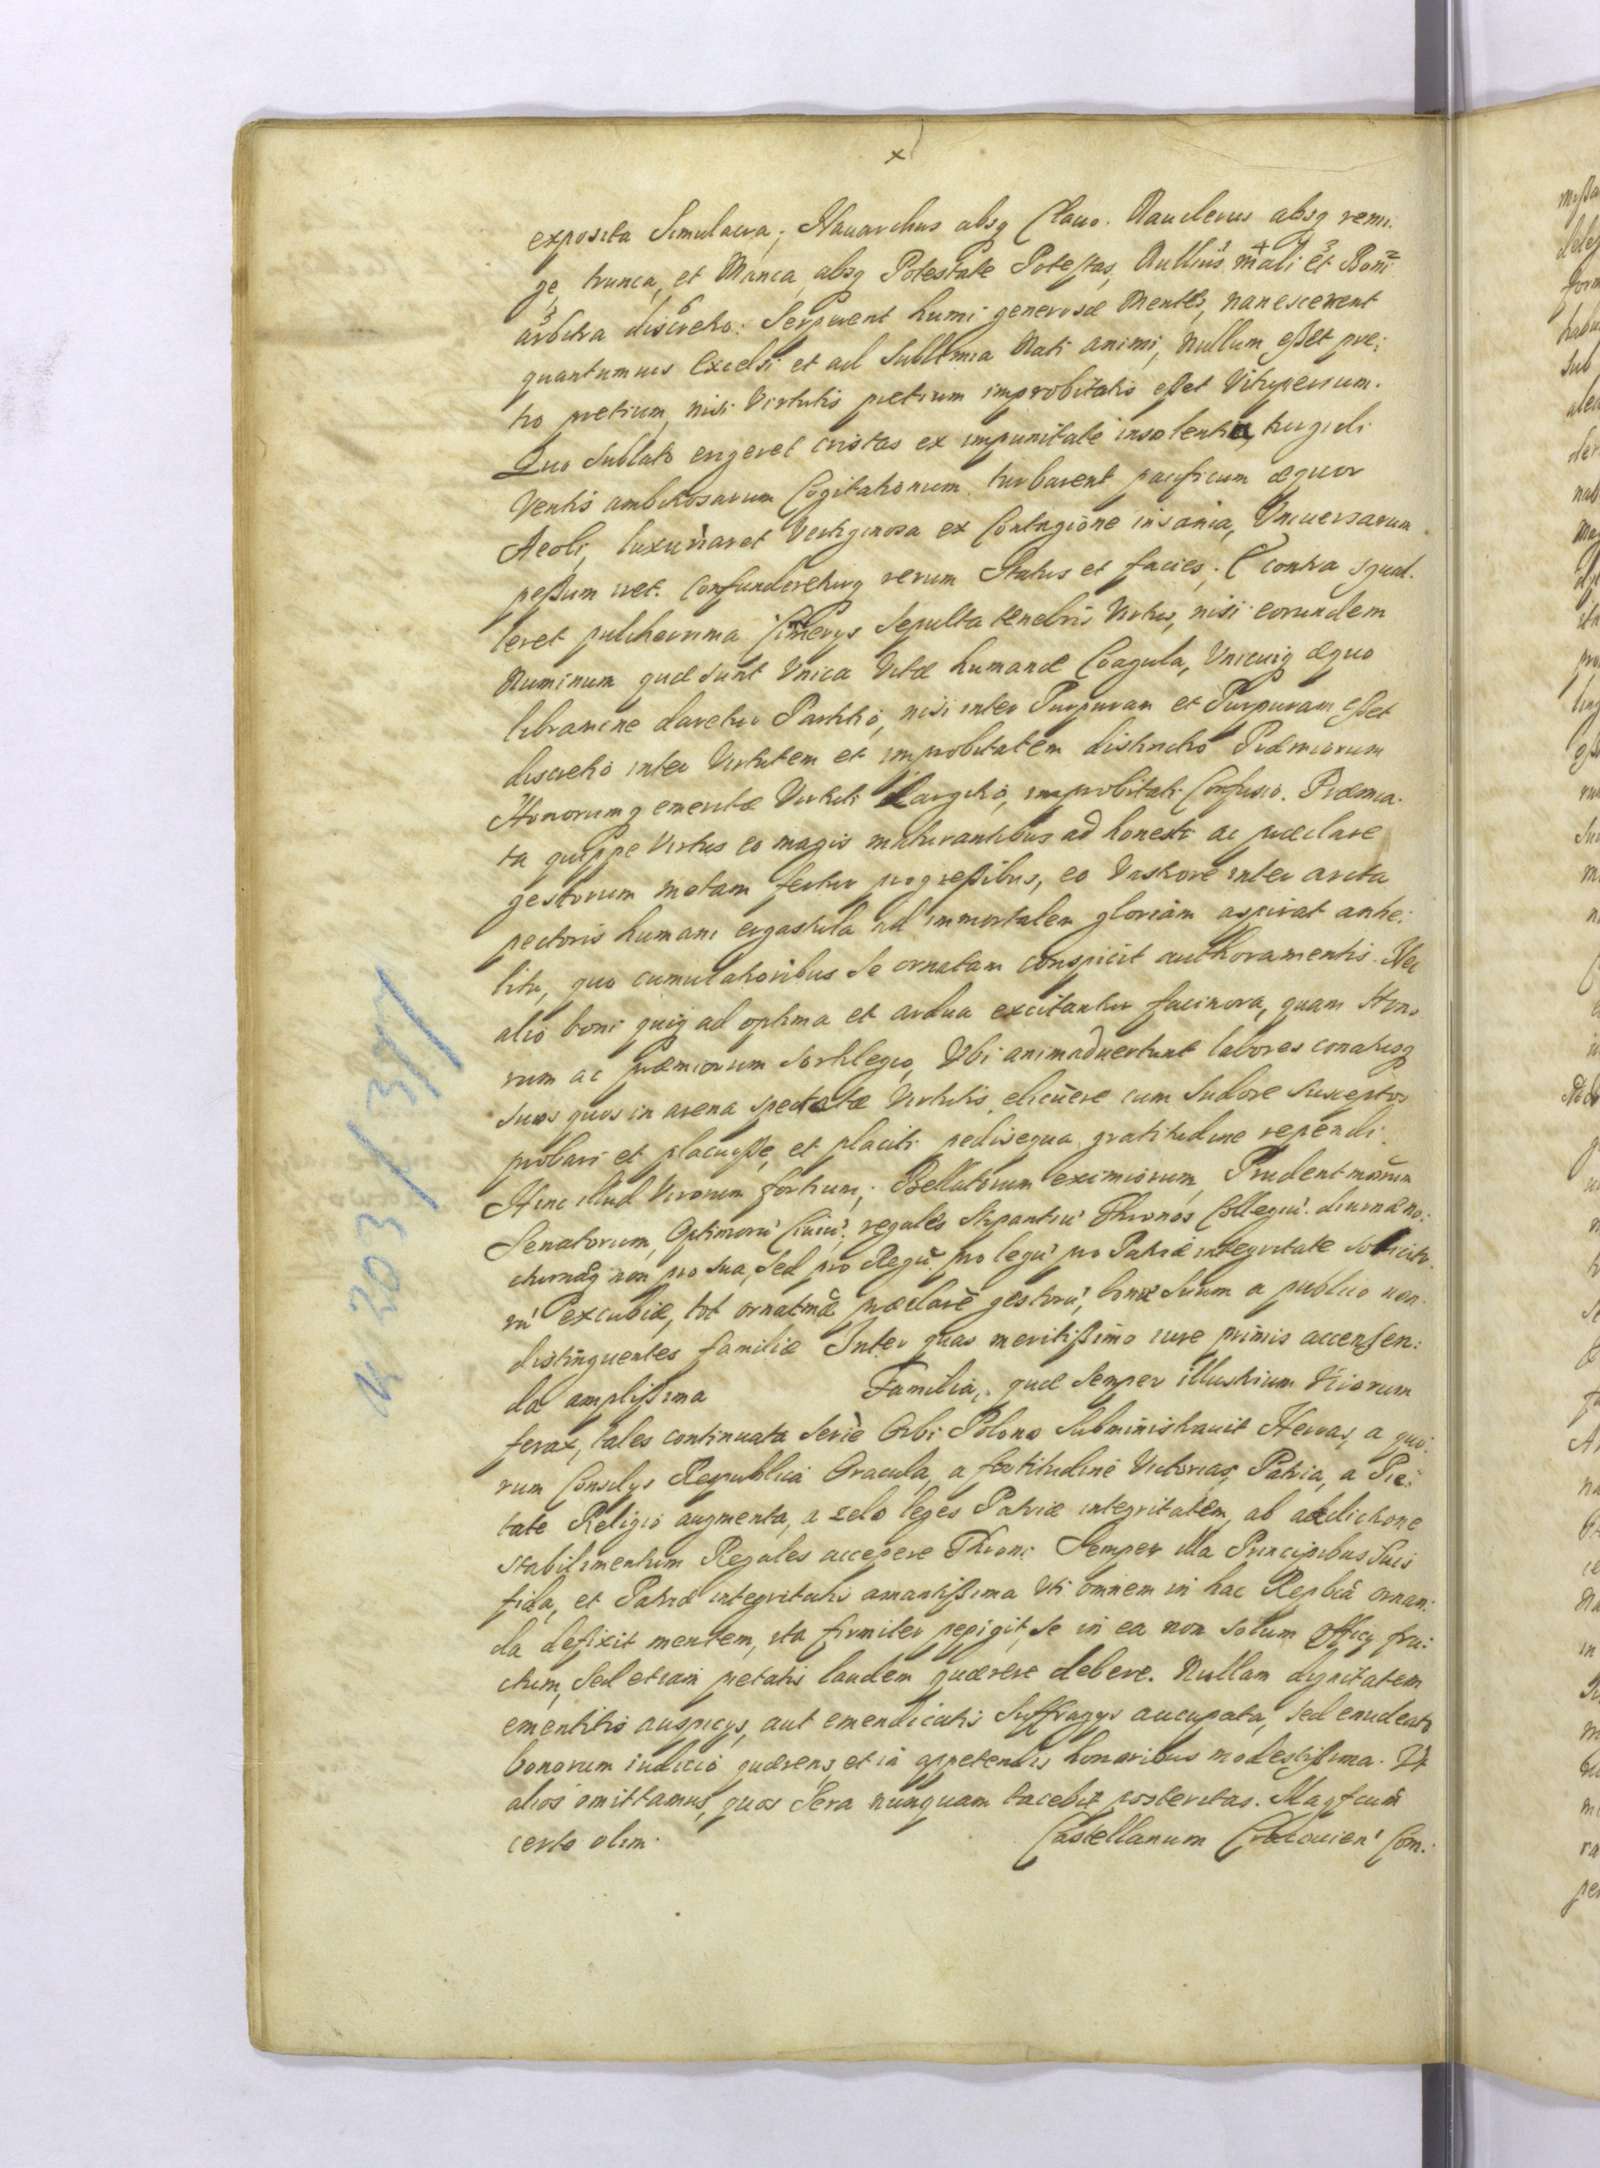 x
exposita Simulacra; Nauarchus absq Clauo. Nauclerus absq remi:
ge, trunca, et Manca, absq Potestate Potestas, Nullius mali et Boni
arbitra discretio: Serperent humi generosæ Mentes, vanescerent
quantumuis Excelsi et ad Sublimia Nati animi, Nullum eßet pre:
tio pretium, nisi Virtutis pretium improbitatis eßet Vituperium.
Quo Sublato erigeret cristas ex impunitate insolentia, turgidi
Ventis ambitiosarum Cogitationum turbarent pacificum æquor
Aeoli, luxuriaret Vertiginosa ex Contagione insania, Vniuersarum
peßum iret. Confundereturq rerum Status et facies; E contra squal:
leret pulcherrima Cimerys Sepulta tenebris Virtus, nisi eorundem
Numinum quæ sunt Vnica Vitæ humanæ Coagula, Vnicuiq æquo
libramine daretur Partitio, nisi inter Purpuram et Purpuram eßet
discretio inter Virtutem et improbitatem distinctio Præmiorum
Honorumq emeritæ Virtuti Largitio, improbitati Confusio. Præmia:
ta quippe Virtus eo magis maturantibus ad honeste ac præclare
gestorum metam fertur progreßibus, eo Vastiore inter arcta
pectoris humani ergastula ad immortalem gloriam aspirat anhe:
litu, quo cumulatioribus Se ornatam conspicit authoramentis. Nec
alio boni quiq ad optima et ardua excitantur facinora, quam Hono
rum ac præmiorum Sortilegio, Vbi animaduertunt labores conatusq
suos quos in arena spectatæ Virtutis elicuere cum Sudore Susceptos
probari et placuiße, et placiti pedisequa gratitudine rependi.
Hinc illud Virorum fortium; Bellatorum eximiorum, Prudentmorum
Senatorum, Optimoru' Ciuiu'; regales Stipantiu' Thronos Collegiu'. diurnæ no:
cturnæq non pro sua, Sed pro Regu' pro legu' pro Patriæ integritate Solicito:
ru' excubiæ, tot ornatmæ præclare gestoru', bonu' Suum a publico non
distinguentes familiæ Inter quas meritißimo iure primis accensen:
da amplißima Familia, quæ Semper illustrium Virorum
ferax, tales continuata Serie Orbi Polono Subministrauit Heroas, a quo:
rum Consilys Respublica Oracula, a fortitudine Victorias, Patria, a Pie:
tate Religio augmenta, a zelo leges Patriæ integritatem, ab addictione
stabilimentum Regales accepere Throni Semper illa Principibus Suis
fida, et Patriæ integritatis amantißima Vti omnem in hac Repbca ornan:
da defixit mentem, ita firmiter pepigit, Se in ea non Solum Officy fru:
ctum, Sed etiam pietatis laudem quærere debere. Nullam dignitatem
ementitis auspicys, aut emendicatis Suffragys aucupata, sed enucleato
bonorum iudicio quærens, et in appetendis honoribus modestißima. Vt
alios omittamus, quos Sera nunquam tacebit posteritas. Magfcum
certe olim. Castellanum Cracouien' Com:
303 / 377